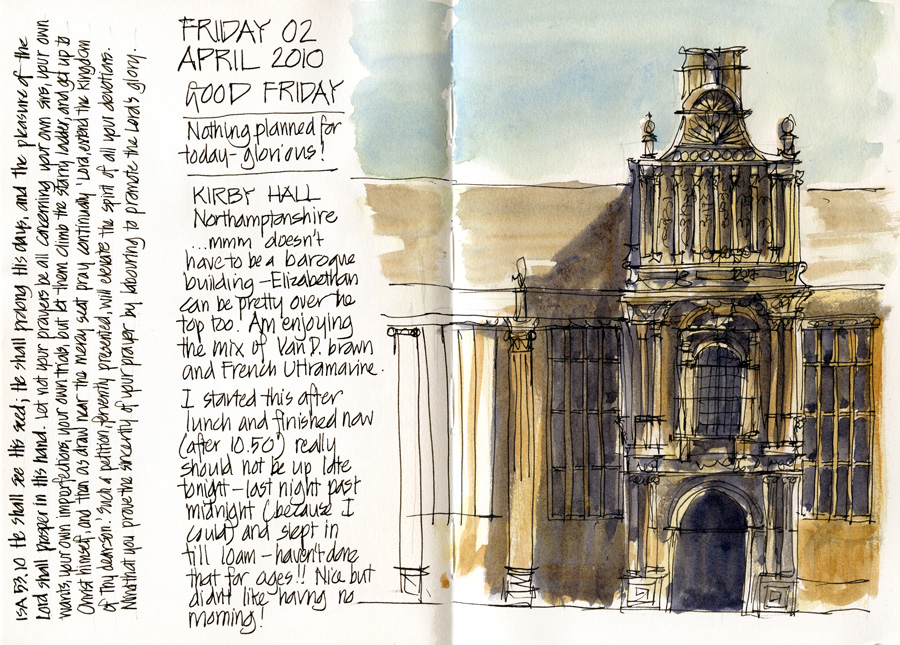 ISA 53.10 He shall see His seed; He shall prolong His days, and the pleasure of the
Lord shall prosper in His hand. Let not your prayers be all concerning your own sins, your own
wants, your own imperfections, your own trials, but let them climb the starry ladder, and get up to
Christ himself, and then as draw near the mercy seat pray continually 'Lord, extend the Kingdom
of Thy dear son.' Such a petition, fervently presented, will elevate the spirit of all your devotions.
Mind that you prove the sincerity of your prayer by labouring to promote the Lord's glory.
FRIDAY 02
APRIL 2010
GOOD FRIDAY
Nothing planned for
today - glorious!
KIRBY HALL
Northamptonshire
...mmm doesn't
have to be a baroque
building - Elizabethan
can be pretty over the
top too. Am enjoying
the mix of Van D. brown
and French Ultramarine.
I started this after
lunch and finished now
(after 10.50) really
should not be up late
tonight - last night past
midnight (because I
could) and slept in
till 10am - haven't done
that for ages!! Nice but
didn't like having no
morning!